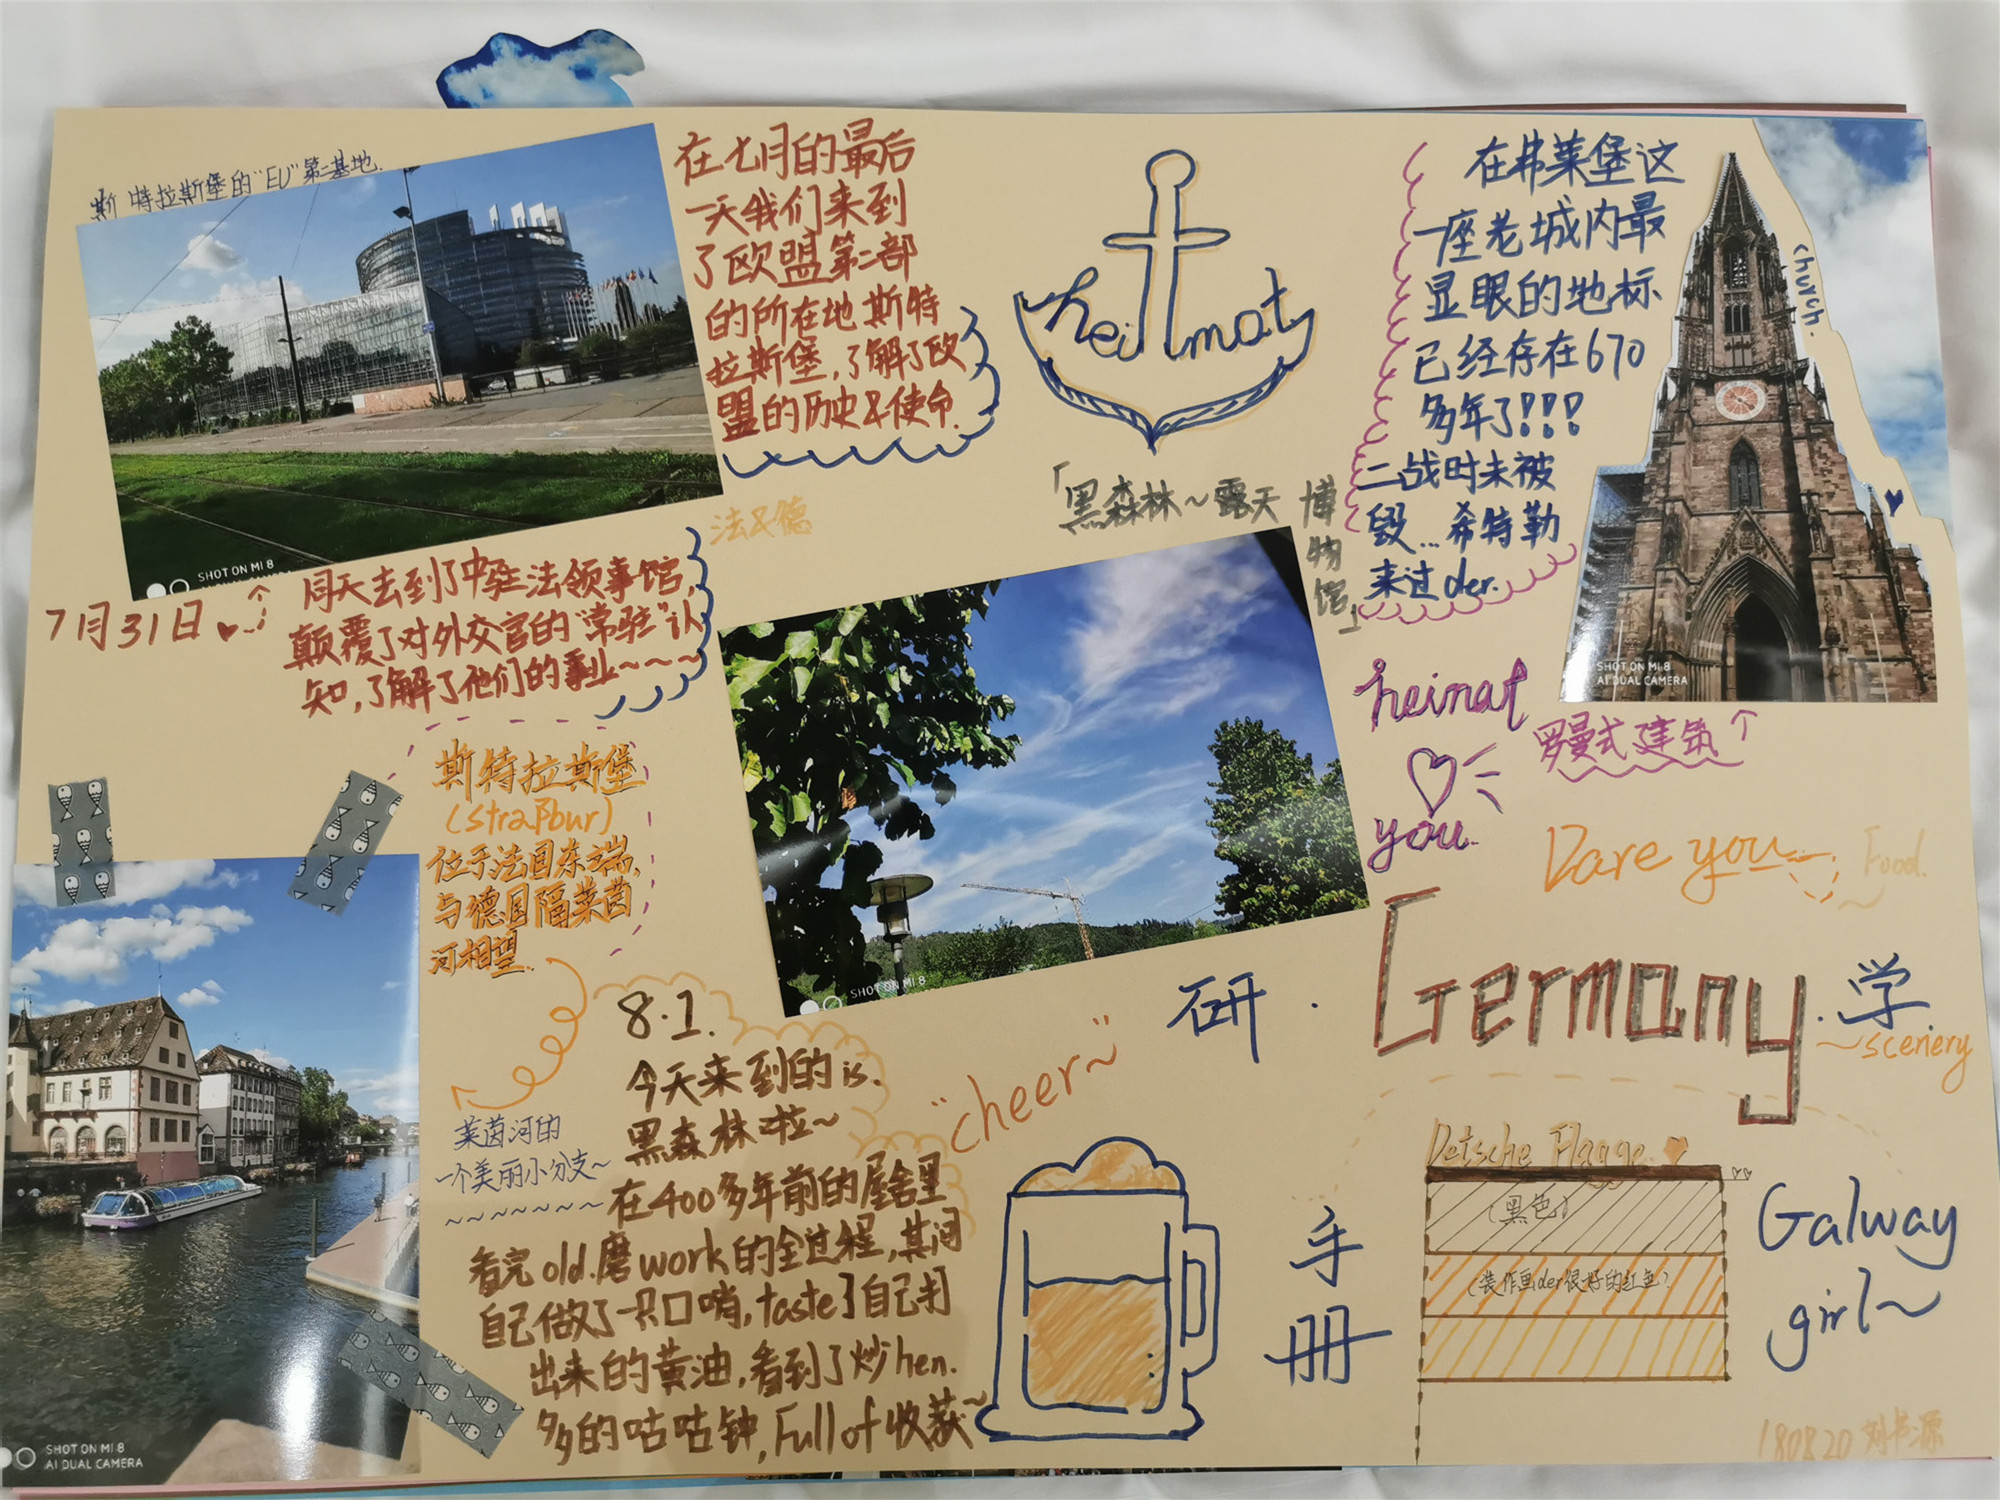 斯特拉斯堡的“EU”第二基地.
在七月的最后
一天我们来到
了欧盟第二部
的所在地斯特
拉斯堡,了解了欧
盟的历史&使命.
法&德
SHOT ON MI 8
7月31日
同天去到了中驻法领事馆,
颠覆了对外交官的“常驻”认
知,了解了他们的事业~~~~
heimat
「黑森林~露天博
物
馆」
在弗莱堡这
一座老城内最
显眼的地标
已经存在670
多年了!!!
二战时未被
毁...希特勒
来过der.
church.
SHOT ON MI 8
AI DUAL CAMERA
罗曼式建筑
heimat
you.
Dare you
Food.
斯特拉斯堡
(straβbur)
位于法国东端,
与德国隔莱茵
河相望.
莱茵河的
一个美丽小分支~
SHOT ON MI 8
AI DUAL CAMERA
SHOT ON MI 8
8.1.
今天来到的is.
黑森林啦~
在400多年前的屋舍里
看完old.磨work的全过程,其间
自己做了一只口哨,taste了自己打
出来的黄油,看到了炒hen.
多的咕咕钟,Full of 收获~
“cheer~”
研·Germany·学.
~scenery
手
册
Detsche Flagge
(黑色)
(装作画der很好的红色)
Galway
girl~
180820 刘书源